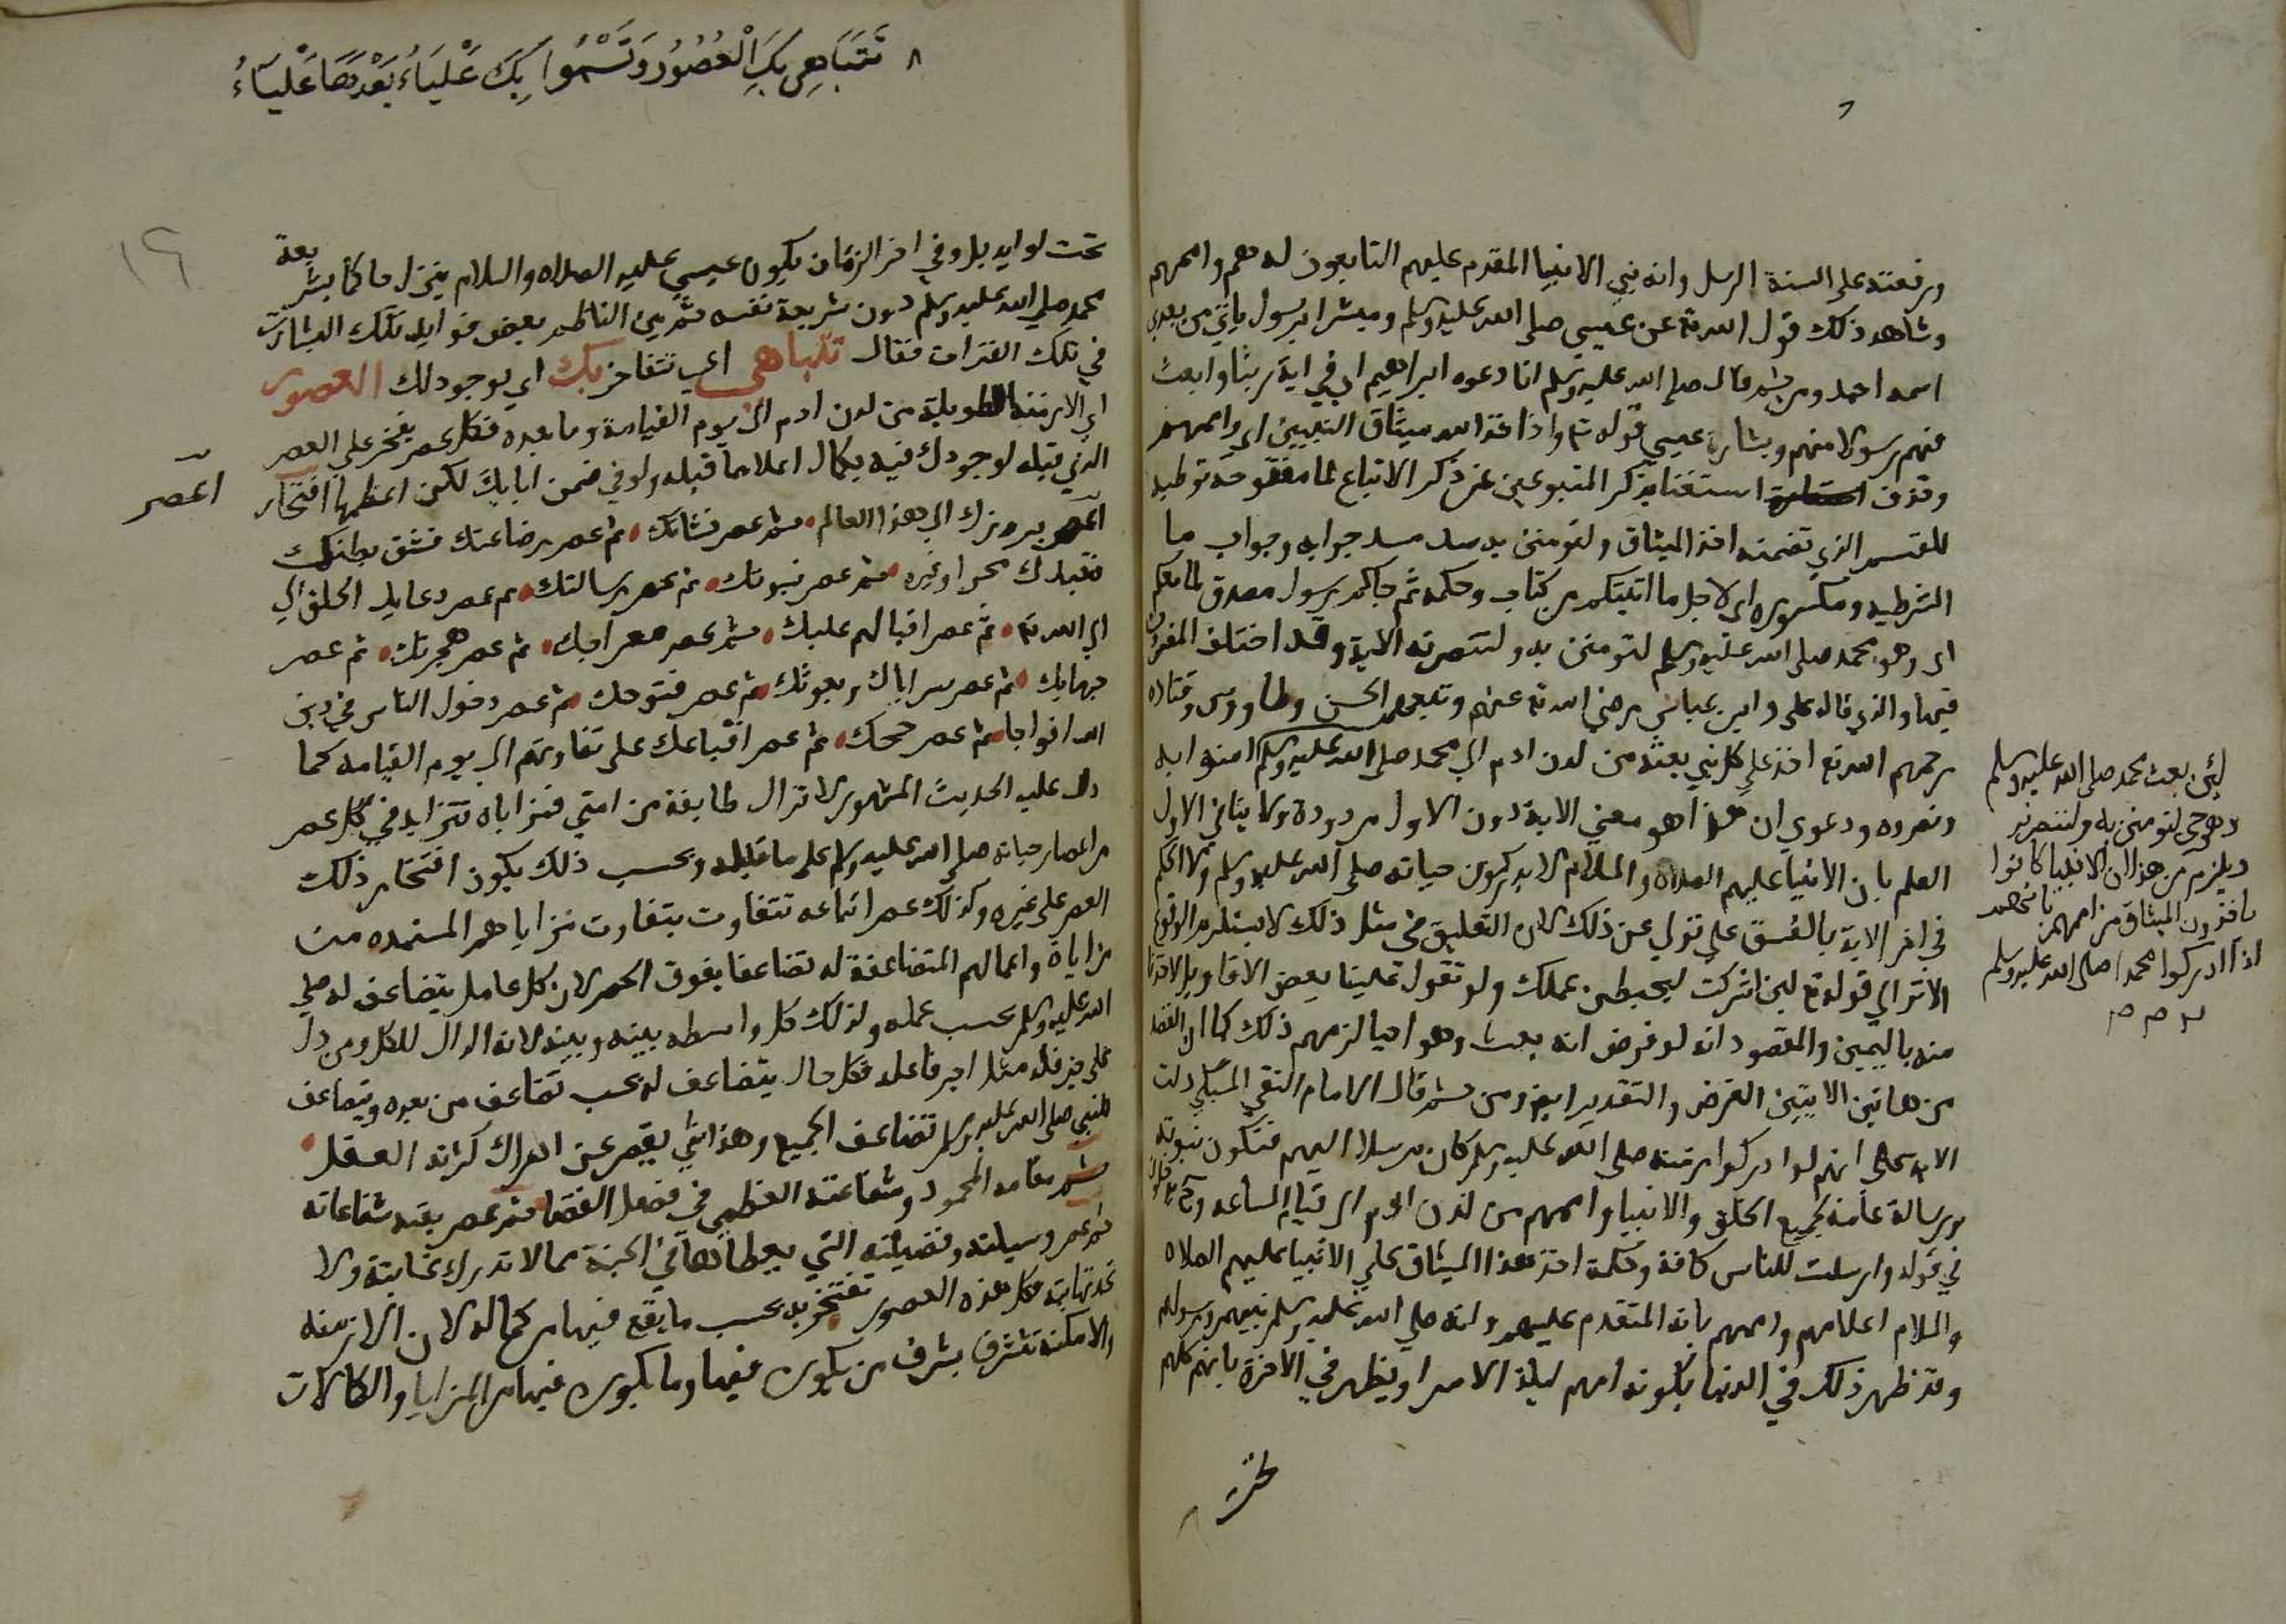 ورفعته على السنة الرسل وانه نبي الانبيا المقدم عليهم التابعون له هم واممهم
وشاهد ذلك قول الله تع عن عيسى صلى الله عليه وسلم ومبشرا برسول ياتي من بعدي
اسمه احمد ومن ثم قال صلى الله عليه وسلم انا دعوه ابراهيم اي في اية ربنا وابعث
فيهم رسولا منهم وبشارة عيسى قوله تع واذ اخذ الله ميثاق النبيين اي واممهم
وحذف استغنا بذكر المتبوعين عن ذكر الاتباع لما مفتوحة توطيه
للقسم الذي تضمنه اخذ الميثاق ولتومنن به سد مسد جوابه وجواب ما
الشرطيه ومكسوره اي لاجل ما اتيتكم من كتاب وحكمه ثم جاكم رسول مصدق لما معكم
اي وهو محمد صلى الله عليه وسلم لتومنن به ولتنصرنه الاية وقد اختلف المفسرون
فيها والذي قاله علي وابن عباس رضي الله تع عنهم وتبعهما الحسن وطاووس وقتاده
رحمهم الله تع اخذ على كل نبي بعثه من لدن ادم الى محمد صلى الله عليه وسلم امنوا به
ونصروه ودعوى ان هذا هو معني الاية دون الاول مردودة ولا ينافي الاول
العلم بان الانبيا عليهم الصلاه والسلام لا يدركون حياته صلى الله عليه وسلم ولا الحكم
في اخر الاية بالفسق على من تولي عن ذلك لان التعليق في مثل ذلك لا يستلزم الوقوع
الا تر الي قوله تع لين اشركت ليحبطن عملك ولو تقول علينا بعض الاقاويل لاخذنا
منه باليمين والمقصود انه لو فرض انه بعث وهو احيا لزمهم ذلك كما ان القصد
من هاتين الايتين الفرض والتقدير ايضا ومن ثم قال الامام التقي السبكي دلت
الاية على انهم لو ادركوا زمنه صلى الله عليه وسلم كان مرسلا اليهم فتكون نبوته
ورسالة عامة لجميع الخلق والانبيا واممهم من لدن ادم الى قيام الساعه
في قوله وارسلت للناس كافة وحكمة اخذ هذا الميثاق على الانبيا عليهم الصلاه
والسلام اعلامهم واممهم بانه المتقدم عليهم وانه صلى الله عليه وسلم نبيهم ورسولهم
وقد ظهر ذلك في الدنيا بكونه امهم ليلة الاسرا ويظهر في الاخرة بانهم كلهم
تحت
لئن بعث محمد صلى الله عليه وسلم
وهو حي لتومنن به ولتنصرنه
ويلزم من هذا ان الانبيا كانوا
ياخذون الميثاق من اممهم بانهم
اذا ادركوا محمدا صلى الله عليه وسلم
٨ تَتَبَاهى بِكَ الْعُصُورُ وَتَسْمُوا بِكَ عَلْيَاءُ بَعْدَهَا عَلْيَاءُ
١٦
تحت لوايه بل وفي اخر الزمان يكون عيسى عليه الصلاه والسلام ينزل حاكما بشريعة
محمد صلى الله عليه وسلم دون شريعة نفسه ثم بين الناظم بعض فوايد تلك البشارات
في تلك الفترات فقال تتباهى اي تتفاخر بك اي بوجودك العصور
اي الازمنة الطويلة من لدن ادم الى يوم القيامة وما بعده فكل عصر يفخر على العصر
الذي قبله لوجودك فيه بكمال اعلا مما قبله ولو في ضمن ابايك لكن اعظمها افتخار
اعصر
اعصر بروزك الى هذا العالم ثم عصر نشاتك ثم عصر رضاعتك فشق بطنك
فتعبدك بحرا وغيره ثم عصر نبوتك ثم عصر رسالتك ثم عصر دعايك الخلق الى
الى الله تع ثم عصر اقبالهم عليك ثم عصر معراجك ثم عصر هجرتك ثم عصر
جهادك ثم عصر سراياك وبعوثك ثم عصر فتوحك ثم عصر دخول الناس في دين
الله افواجا ثم عصر حجك ثم عصر اتباعك على تفاوتهم الى يوم القيامه كما
دل عليه الحديث المشهور لا تزال طايفة من امتي فمزاياه تتزايد في كل عصر
من اعصار حياته صلى الله عليه وسلم على ما قبله وبحسب ذلك يكون افتخار ذلك
العصر على غيره وكذلك عصر اتباعه تتفاوت بتفاوت مزاياهم المستمده من
مزاياه واعمالهم المتضاعفة له تضاعفا يفوق الحصر لان كل عامل يتضاعف له صلى
الله عليه وسلم بحسب عمله وكذلك كل واسطه بينه وبينه لانه الدال للكل ومن دل
على خير فله مثل اجر فاعله فكل دال يتضاعف له بحسب تضاعف من بعده ويتضاعف
للنبي صلى الله عليه وسلم تضاعف الجميع وهذا شي يقصر عن ادراك كثرته العقل
ثم مقامه المحمود وشفاعته العظمى في فصل القضا ثم عصر بقية شفاعاته
ثم عصر وسيلته وفضيلته التي يعطاها في الجنة مما لا تدرك غايته ولا
تحد نهايته فكل هذه العصور تفتخر به بحسب ما يقع فيها من كماله لان الازمنه
والامكنه تتشرف بشرف من يكون فيها وما يكون فيها من المزايا والكمالات